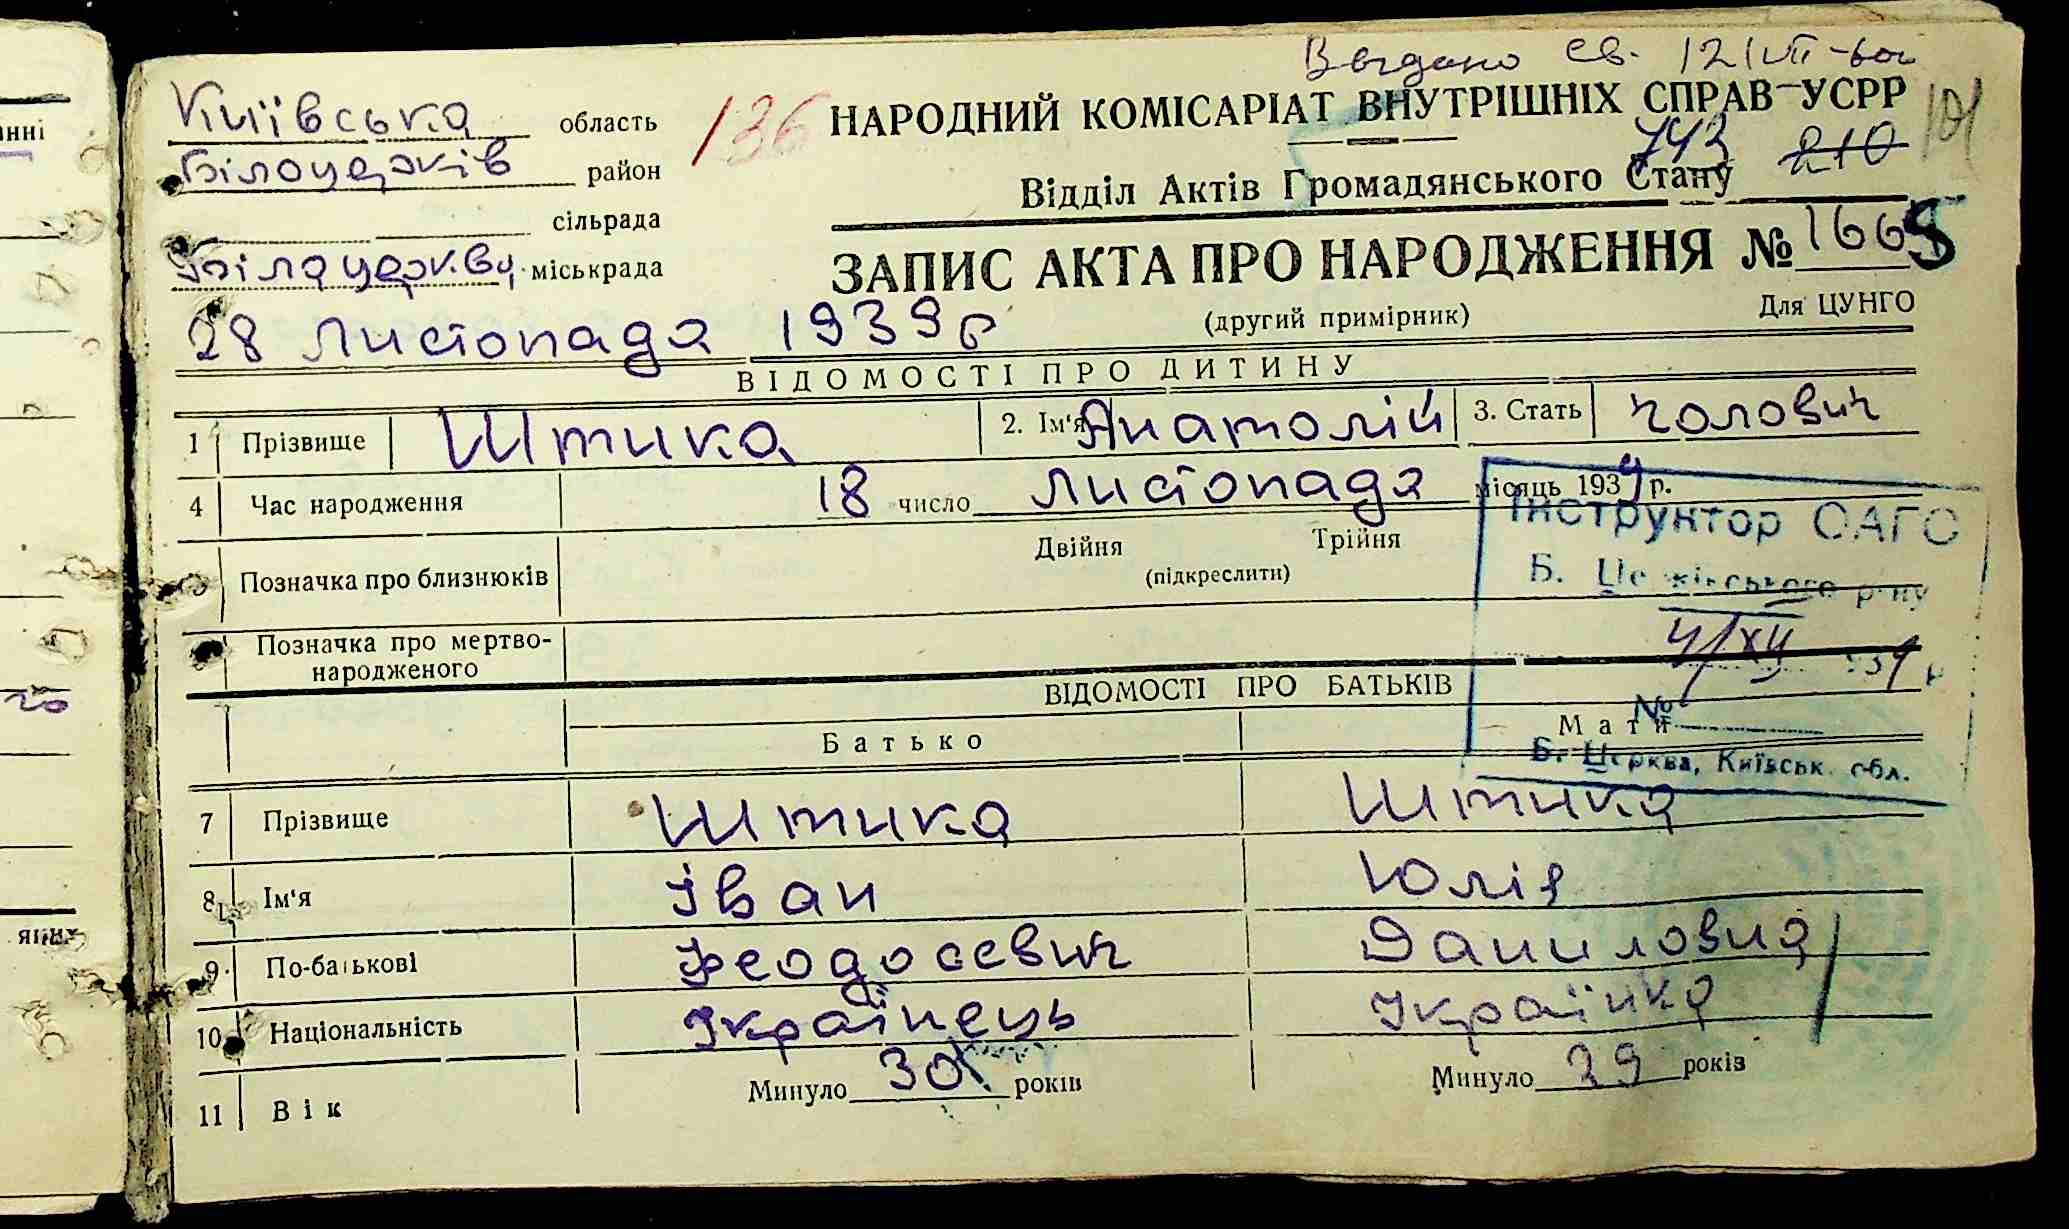 Видано св. 12/VII-60
Київська область
136
НАРОДНИЙ КОМІСАРІАТ ВНУТРІШНІХ СПРАВ УСРР
101
Білоцерків район
743 210
Відділ Актів Громадянського Стану
сільрада
Білоцеркву міськрада
ЗАПИС АКТА ПРО НАРОДЖЕННЯ № 1665
28 листопада 1939 р
(другий примірник)
Для ЦУНГО
ВІДОМОСТІ ПРО ДИТИНУ
1 Прізвище Штика 2. Ім'я Анатолій 3. Стать чолович
4 Час народження 18 число листопада місяць 1939 р.
5 Позначка про близнюків Двійня Трійня
(підкреслити)
Інструктор ОАГС
Б. Церківського р-ну
4/XII 1939 р
№
Б. Церква, Київськ. обл.
Позначка про мертво-
народженого
ВІДОМОСТІ ПРО БАТЬКІВ
Батько Мати
7 Прізвище Штика Штика
8 Ім'я Іван Юлія
9 По-батькові Феодосевич Даниловна
10 Національність Українець Українка
11 Вік Минуло 30 років Минуло 29 років
нні
яких